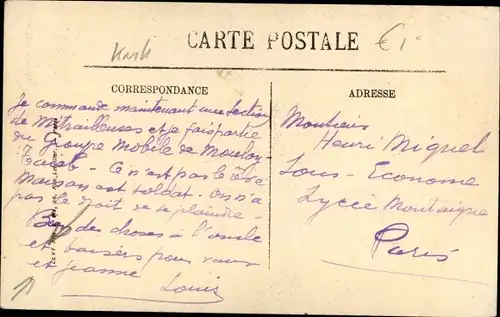 Kish
CARTE POSTALE
€1
CORRESPONDANCE
Je commande maintenant une section
de Mitrailleuses et je fais partie
du Groupe Mobile de Moulou
- Ce n'est pas le rêve
Maison est soldat - On n'a
pas le droit de se plaindre -
Bien des choses à l'oncle
et baisers pour vous
et Jeanne
Louis
ADRESSE
Monsieur
Henri Miquel
Sous-Econome
Lycée Montaigne
Paris